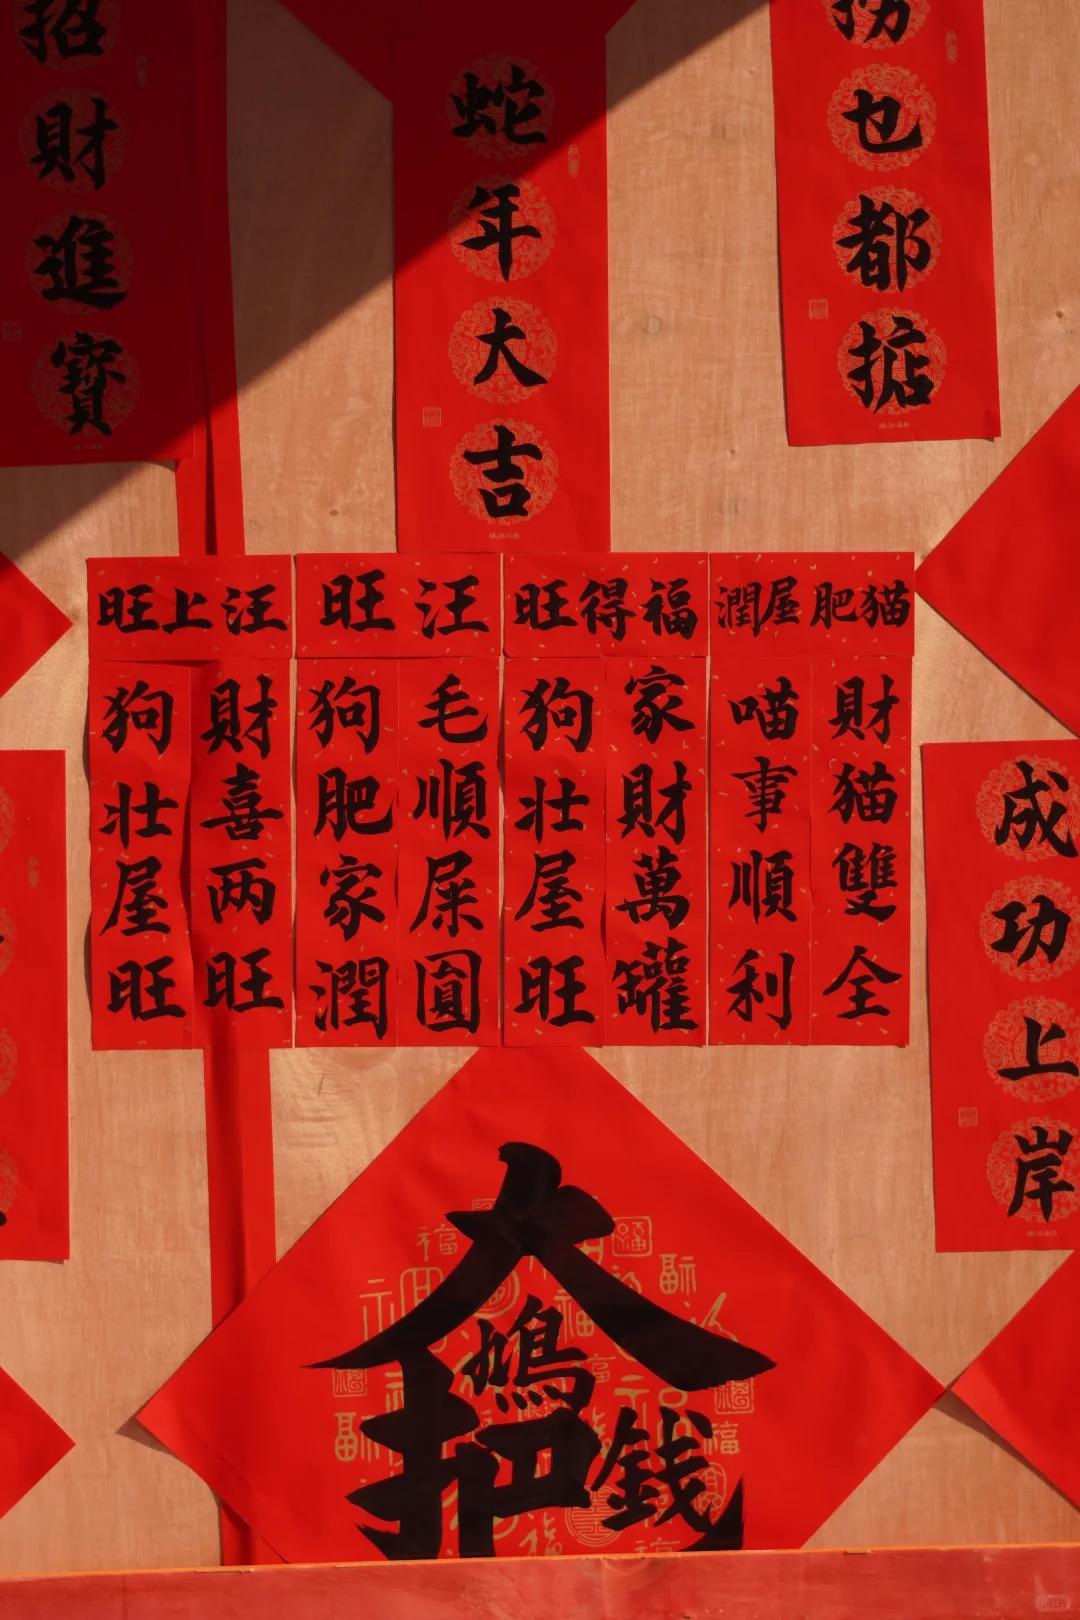 招財進寶
蛇年大吉
撈乜都掂
旺上汪
旺汪
旺得福
潤屋肥猫
狗壯屋旺
財喜两旺
狗肥家潤
毛順屎圓
狗壯屋旺
家財萬罐
喵事順利
財猫雙全
成功上岸
大
鳩
扣
錢